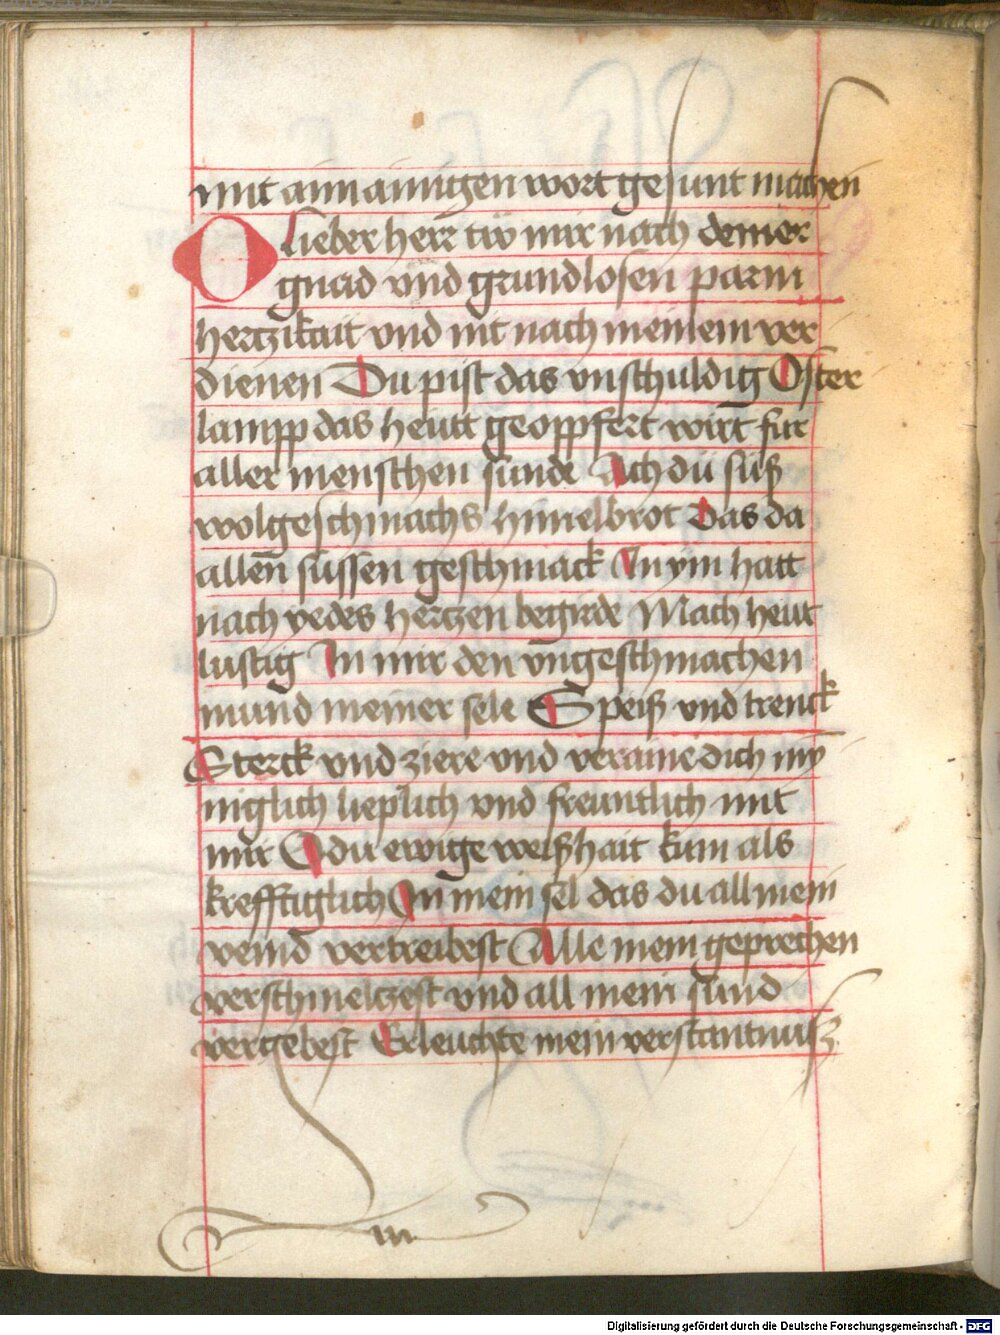 mit aim ainigen wort gesunt machen
O lieber herr tů mir nach deiner
gnad vnd grundlosen parm
hertzikait vnd nit nach meinem ver
dienen Du pist das vnschuldig Oster
lampp das heütt geoppfert wirt für
aller menschen sünde Ach du süß
wolgeschmachs himelbrot Das da
allen süssen geschmack In ym hatt
nach yedes hertzen begirde Mach heut
lustig In mir den vngeschmachen
mund meiner sele Speiß vnd trenck
Sterck vnd ziere vnd veraine dich iny
niglich lieplich vnd freuntlich mit
mir O du ewige weißhait kum als
krefftiglich In mein sel das du all mein
veind vertreibest Alle mein geprechen
verschmeltzest vnd all mein sünd
vergebest Erleuchte mein verstantnuß
Digitalisierung gefördert durch die Deutsche Forschungsgemeinschaft - DFG